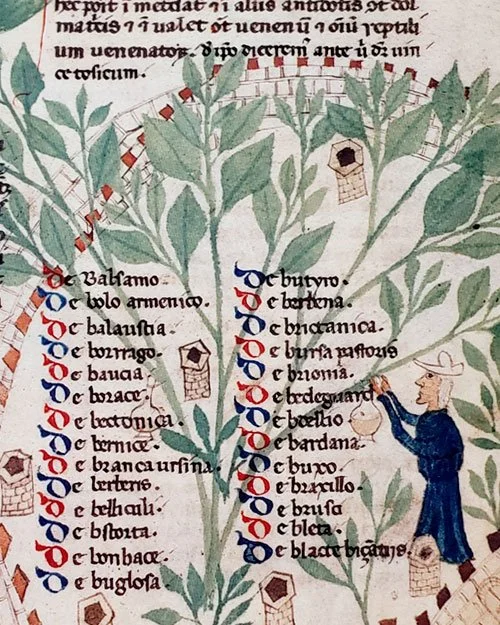 hec poīt ī metdat & ī aliis antidotis ɋt dol
matēis & n̄ ualet ɋt uenenū & oīū reptili
um uenenatoꝝ. d̄ ip̄o dicerem̄ ante ū d̄z uin
ce tosicum.
De Balsamo.
De bolo armenico.
De balaustia.
De borrago.
De baucia
De borace.
De bectonica.
De bernice.
De branca ursina.
De berberis.
De bellicūli.
De bstorta.
De bonbace.
De buglosa.
De butyro.
De berbena.
De brictanica.
De bursa pastoris
De brionia.
De bedeguard
De bdellio
De bardana.
De buxo.
De braxillo.
De brusci
De bleta.
De blacte biçātiis.